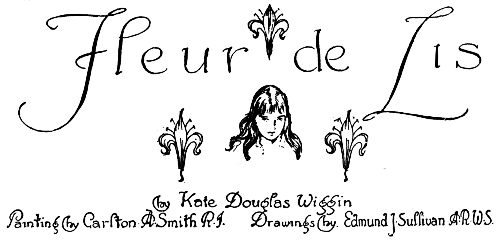 Fleur de Lis
by Kate Douglas Wiggin
Painting by Carlton A. Smith R.I. Drawings by Edmund J. Sullivan A.R.W.S.